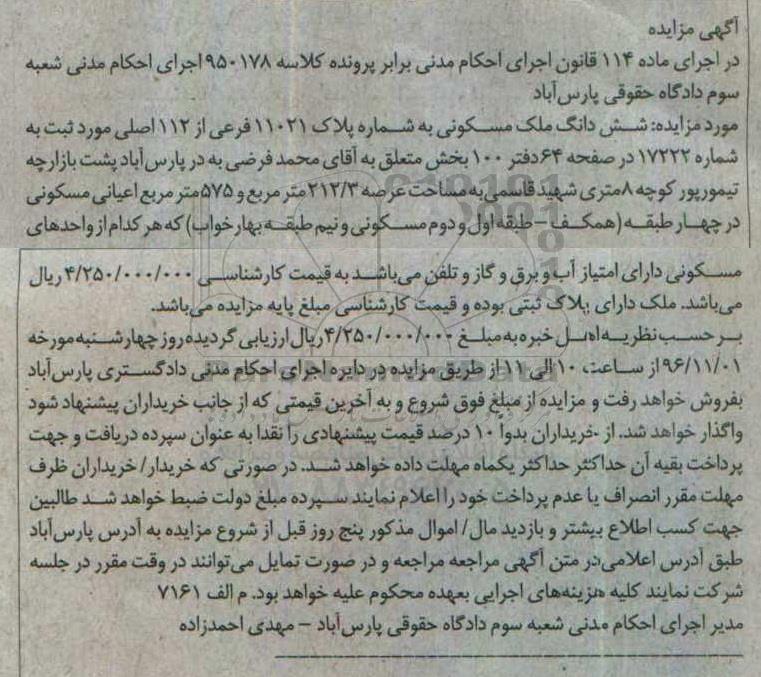 آگهی مزایده
در اجرای ماده ۱۱۴ قانون اجرای احکام مدنی برابر پرونده کلاسه ۹۵۰۱۷۸ اجرای احکام مدنی شعبه
سوم دادگاه حقوقی پارس‌آباد
مورد مزایده: شش دانگ ملک مسکونی به شماره پلاک ۱۱۰۲۱ فرعی از ۱۱۲ اصلی مورد ثبت به
شماره ۱۷۲۲۲ در صفحه ۶۴ دفتر ۱۰۰ بخش متعلق به آقای محمد فرضی به در پارس‌آباد پشت بازارچه
تیمورپور کوچه ۸ متری شهید قاسمی به مساحت عرصه ۲۱۲/۳ متر مربع و ۵۷۵ متر مربع اعیانی مسکونی
در چهار طبقه (همکف - طبقه اول و دوم مسکونی و نیم طبقه بهارخواب) که هر کدام از واحدهای
مسکونی دارای امتیاز آب و برق و گاز و تلفن می‌باشد به قیمت کارشناسی ۴/۲۵۰/۰۰۰/۰۰۰ ریال
می‌باشد. ملک دارای پلاک ثبتی بوده و قیمت کارشناسی مبلغ پایه مزایده می‌باشد.
بر حسب نظریه اهل خبره به مبلغ ۴/۲۵۰/۰۰۰/۰۰۰ ریال ارزیابی گردیده روز چهارشنبه مورخه
۹۶/۱۱/۰۱ از ساعت ۱۰ الی ۱۱ از طریق مزایده در دایره اجرای احکام مدنی دادگستری پارس‌آباد
بفروش خواهد رفت و مزایده از مبلغ فوق شروع و به آخرین قیمتی که از جانب خریداران پیشنهاد شود
واگذار خواهد شد. از خریداران بدوا ۱۰ درصد قیمت پیشنهادی را نقدا به عنوان سپرده دریافت و جهت
پرداخت بقیه آن حداکثر حداکثر یکماه مهلت داده خواهد شد. در صورتی که خریدار/ خریداران ظرف
مهلت مقرر انصراف یا عدم پرداخت خود را اعلام نمایند سپرده مبلغ دولت ضبط خواهد شد طالبین
جهت کسب اطلاع بیشتر و بازدید مال/ اموال مذکور پنج روز قبل از شروع مزایده به آدرس پارس‌آباد
طبق آدرس اعلامی در متن آگهی مراجعه مراجعه و در صورت تمایل می‌توانند در وقت مقرر در جلسه
شرکت نمایند کلیه هزینه‌های اجرایی بعهده محکوم علیه خواهد بود. م الف ۷۱۶۱
مدیر اجرای احکام مدنی شعبه سوم دادگاه حقوقی پارس‌آباد - مهدی احمدزاده